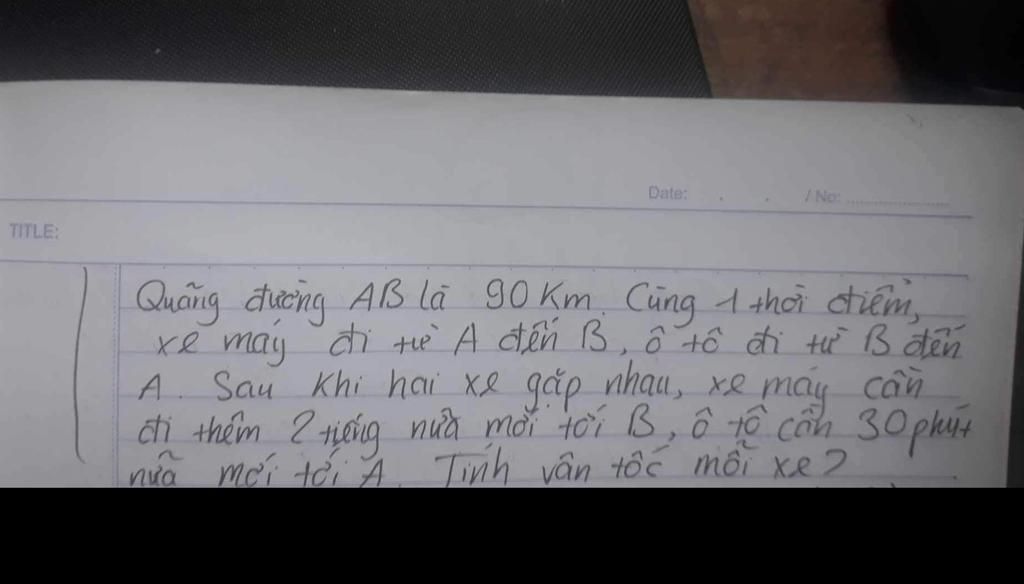 Date: . . / No: ....................
TITLE:
Quãng đường AB là 90 Km. Cùng 1 thời điểm,
xe máy đi từ A đến B, ô tô đi từ B đến
A. Sau khi hai xe gặp nhau, xe máy cần
đi thêm 2 tiếng nữa mới tới B, ô tô cần 30 phút
nữa mới tới A. Tính vận tốc mỗi xe?